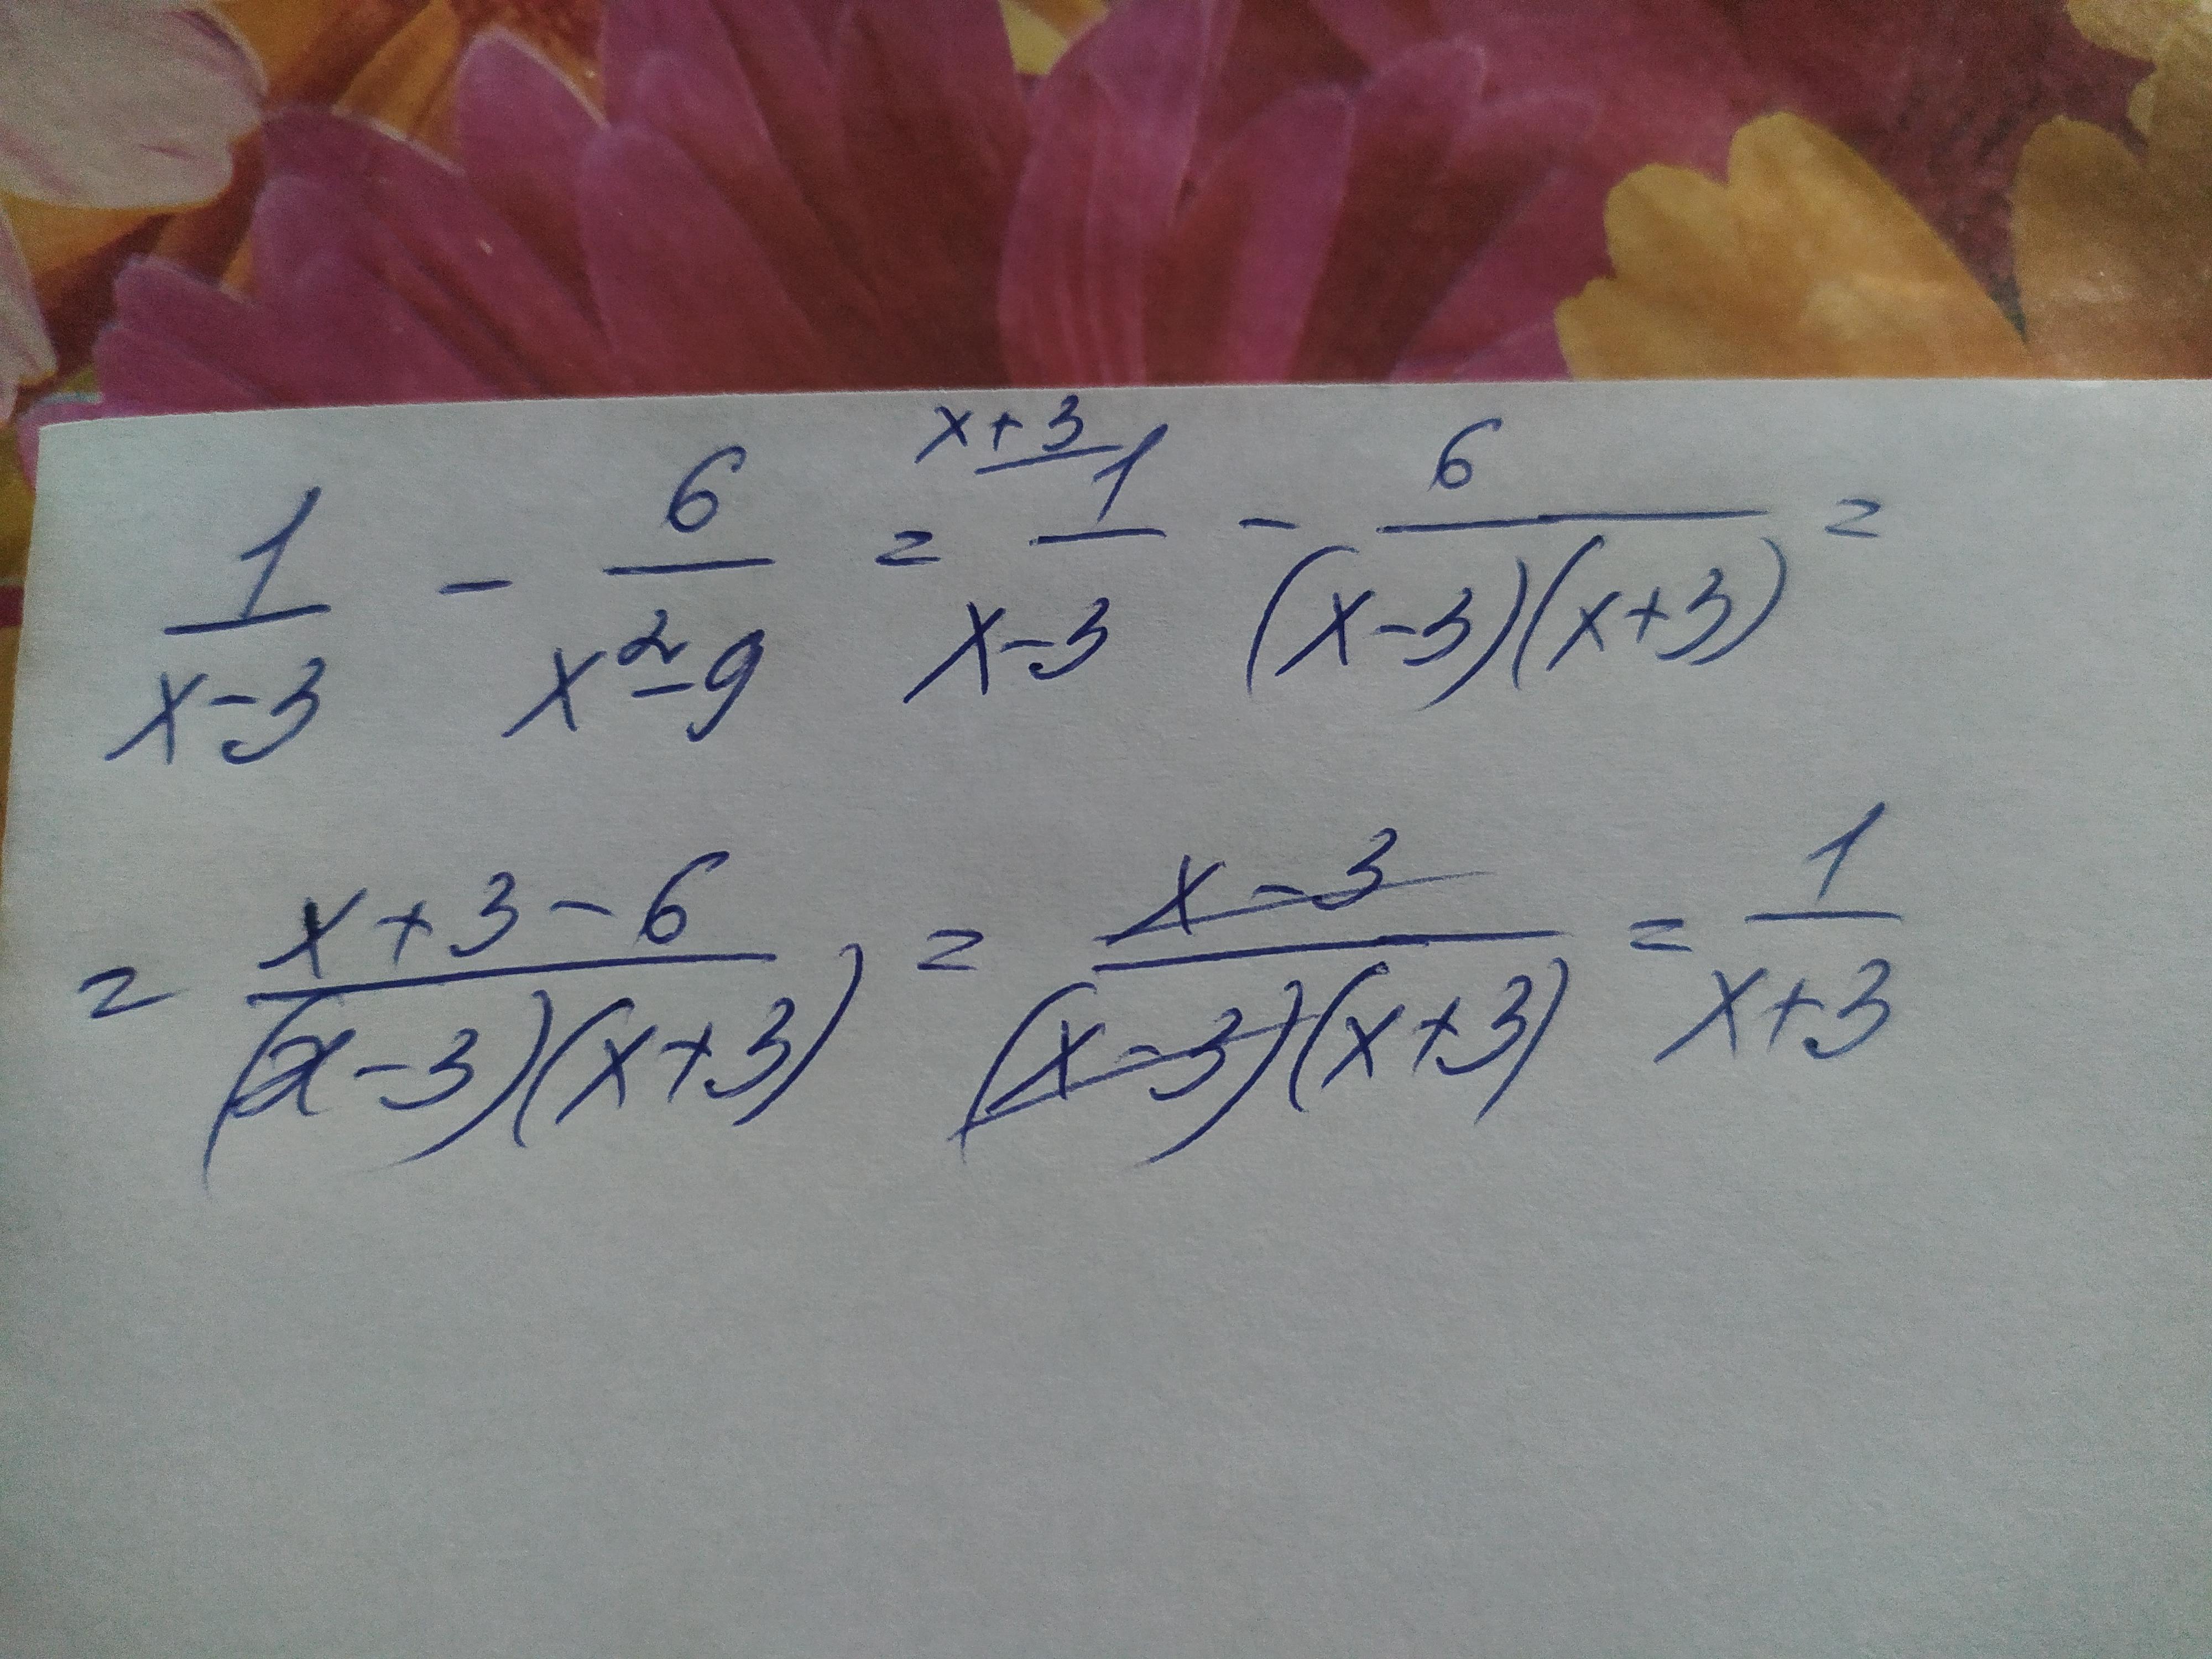 1/(x-3) - 6/(x²-9) = x+3 1/(x-3) - 6/((x-3)(x+3)) =
= (x+3-6)/((x-3)(x+3)) = (x-3)/((x-3)(x+3)) = 1/(x+3)